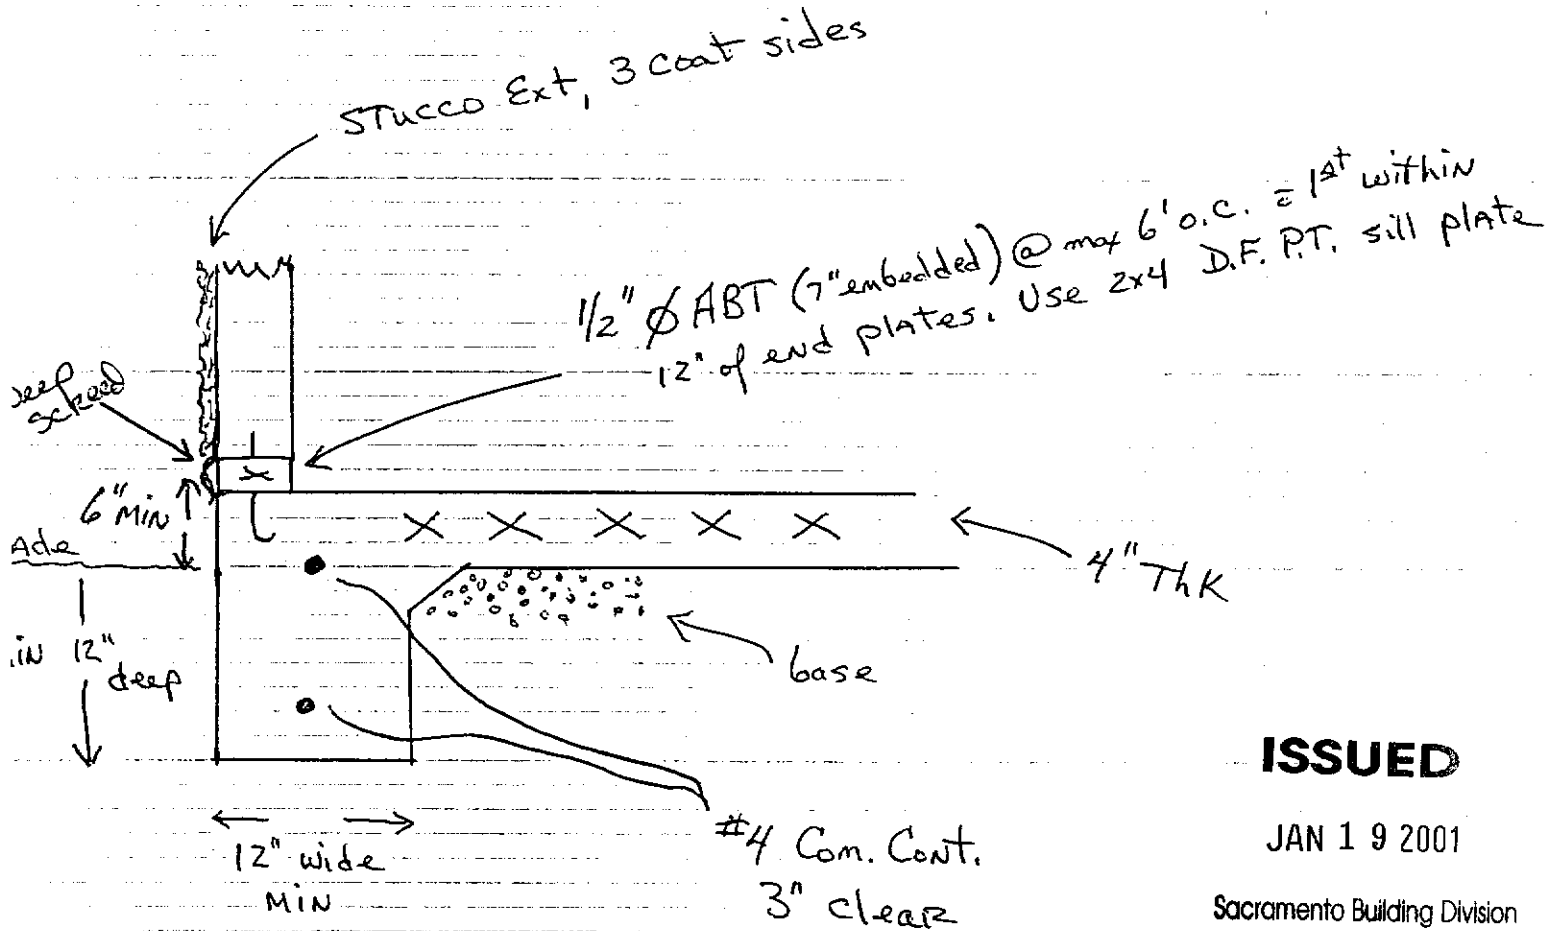 STUCCO Ext, 3 coat sides
1/2" Ø ABT (7" embedded) @ max 6' o.c. = 1st within
12" of end plates. Use 2x4 D.F. P.T. sill plate
screed
6" MIN
Ade
4" Thk
in 12"
deep
base
12" wide
MIN
#4 Con. Cont.
3" clear
ISSUED
JAN 19 2001
Sacramento Building Division